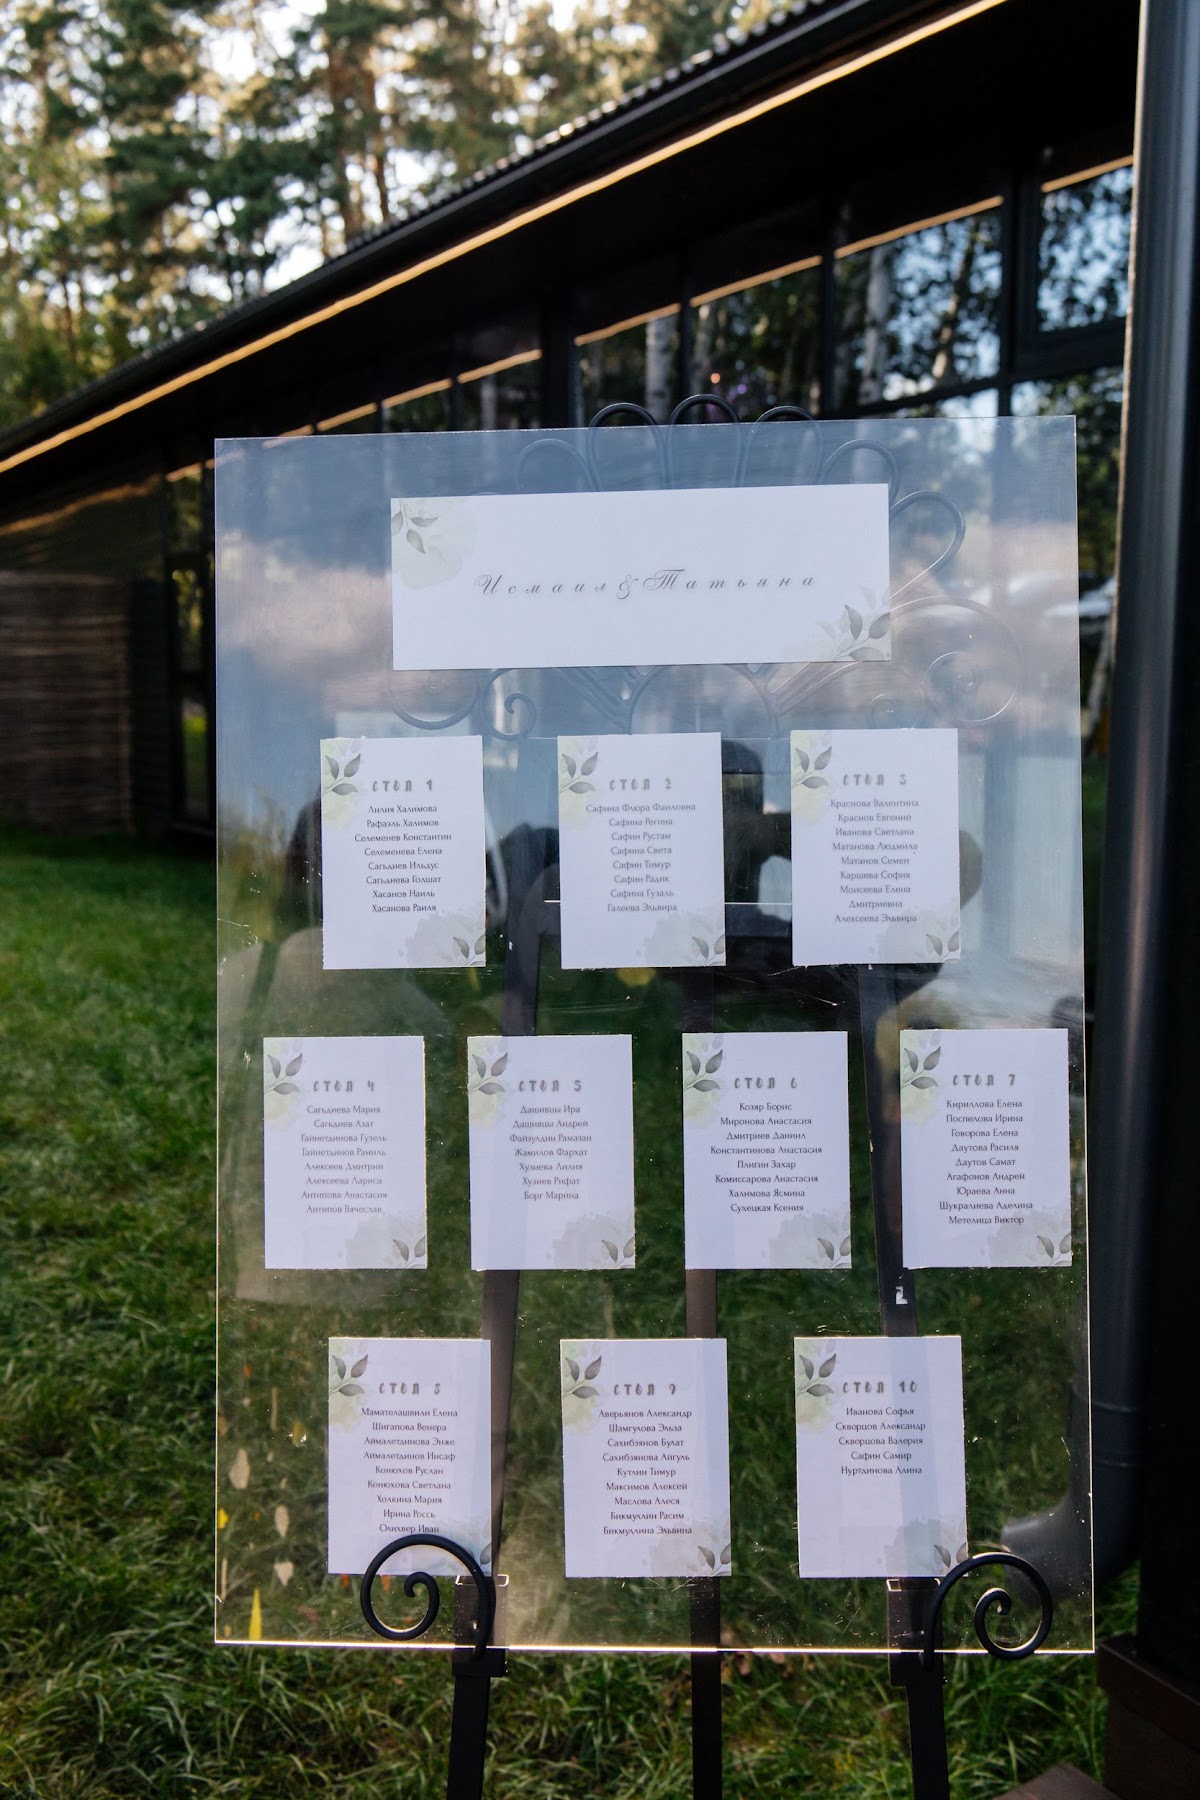 Исмаил & Татьяна
СТОЛ 1
Лилия Халимова
Рафаэль Халимов
Селеменев Константин
Селеменева Елена
Сагъдиев Ильдус
Сагъдиева Голшат
Хасанов Наиль
Хасанова Раиля
СТОЛ 2
Сафина Флюра Фаиловна
Сафина Регина
Сафин Рустам
Сафина Света
Сафин Тимур
Сафин Радик
Сафина Гузаль
Галеева Эльвира
СТОЛ 3
Краснова Валентина
Краснов Евгений
Иванова Светлана
Матанова Людмила
Матанов Семен
Каршева София
Моисеева Елена
Дмитриевна
Алексеева Эльвира
СТОЛ 4
Сагъдиева Мария
Сагъдиев Азат
Гайнетдинова Гузель
Гайнетдинов Рамиль
Алексеев Дмитрий
Алексеева Лариса
Антипова Анастасия
Антипов Вячеслав
СТОЛ 5
Дашивцы Ира
Дашивцы Андрей
Файзулдин Рамазан
Жамилов Фархат
Хузиева Лилия
Хузиев Рифат
Борг Марина
СТОЛ 6
Козяр Борис
Миронова Анастасия
Дмитриев Даниил
Константинова Анастасия
Плигин Захар
Комиссарова Анастасия
Халимова Ясмина
Сухецкая Ксения
СТОЛ 7
Кириллова Елена
Поспелова Ирина
Говорова Елена
Даутова Расиля
Даутов Самат
Агафонов Андрей
Юраева Анна
Шукралиева Аделина
Метелица Виктор
СТОЛ 8
Мамателашвили Елена
Шигапова Венера
Аймалетдинова Энже
Аймалетдинов Инсаф
Конюхов Руслан
Конюхова Светлана
Холкина Мария
Ирина Россь
Олихвер Иван
СТОЛ 9
Аверьянов Александр
Шамгулова Эльза
Сахибзянов Булат
Сахибзянова Айгуль
Кутлин Тимур
Максимов Алексей
Маслова Алеся
Бикмуллин Расим
Бикмуллина Эльвина
СТОЛ 10
Иванова Софья
Скворцов Александр
Скворцова Валерия
Сафин Самир
Нуртдинова Алина